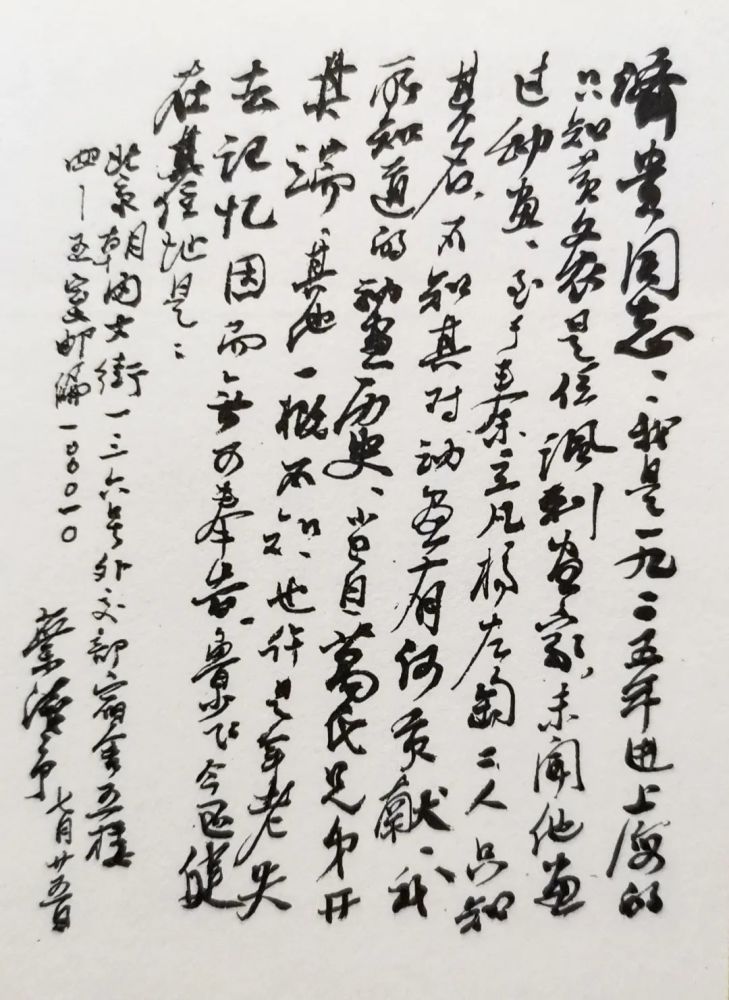 济贵同志：我是一九二五年进上海的
只知黄文农是位讽刺画家，未闻他画
过动画，至于秦立凡杨左匋二人只知
其名，不知其对动画有何贡献，我
所知道的动画历史，当自万氏兄弟开
其端，其他一概不知，也许是年老失
去记忆因而无可奉告。鲁少飞今还健
在其住址是：
北京朝内大街一三六号外交部宿舍五楼
四－五室邮编一〇〇〇一〇
七月廿五日